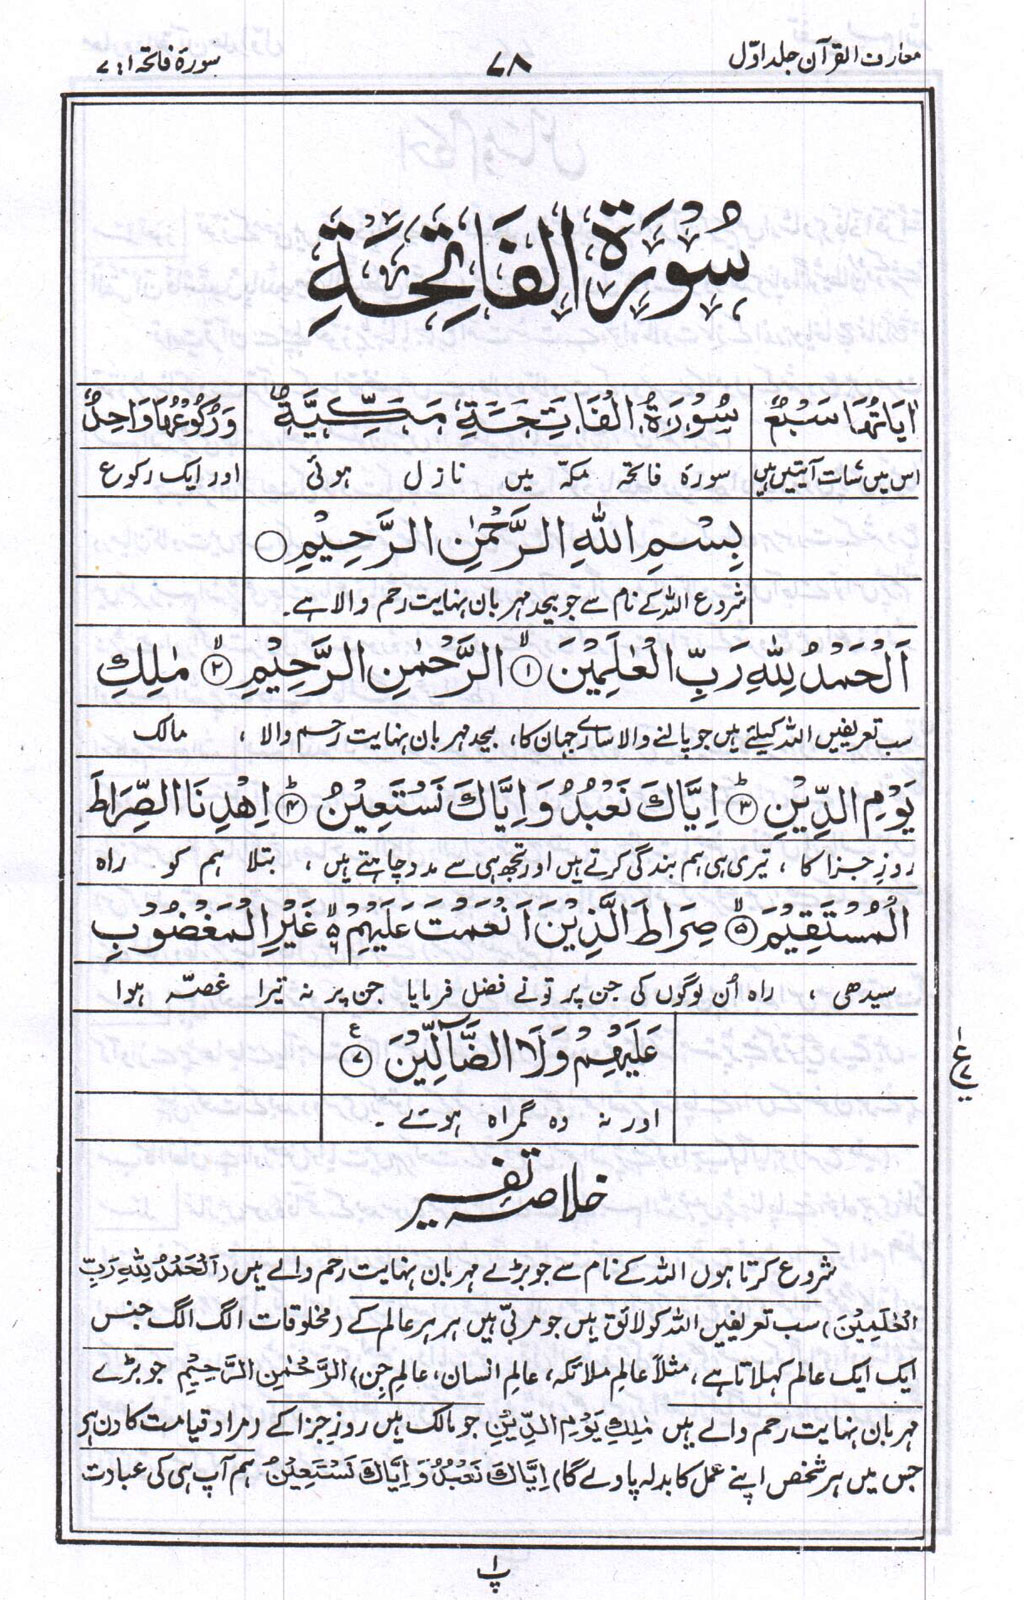 معارف القرآن جلد اوّل
۷۸
سورۃ فاتحہ ۱ : ۷
سُوۡرَۃُ الۡفَاتِحَۃِ
اٰیَاتُهَا سَبۡعٌ سُوۡرَۃُ الۡفَاتِحَۃِ مَکِّیَّۃٌ وَرُکُوۡعُهَا وَاحِدٌ
اس میں سات آیتیں ہیں سورۃ فاتحہ مکہ میں نازل ہوئی اور ایک رکوع
بِسۡمِ اللهِ الرَّحۡمٰنِ الرَّحِیۡمِ
شروع اللہ کے نام سے جو بیحد مہربان نہایت رحم والا ہے۔
اَلۡحَمۡدُ لِلّٰهِ رَبِّ الۡعٰلَمِیۡنَ ۱ الرَّحۡمٰنِ الرَّحِیۡمِ ۲ مٰلِكِ
سب تعریفیں اللہ کیلئے ہیں جو پالنے والا سارے جہان کا، بیحد مہربان نہایت رحم والا ، مالک
یَوۡمِ الدِّیۡنِ ۳ اِیَّاكَ نَعۡبُدُ وَ اِیَّاكَ نَسۡتَعِیۡنُ ۴ اِهۡدِنَا الصِّرَاطَ
روزِ جزا کا ، تیری ہی ہم بندگی کرتے ہیں اور تجھ ہی سے مدد چاہتے ہیں ، بتلا ہم کو راہ
الۡمُسۡتَقِیۡمَ ۵ صِرَاطَ الَّذِیۡنَ اَنۡعَمۡتَ عَلَیۡهِمۡ ۶ غَیۡرِ الۡمَغۡضُوۡبِ
سیدھی ، راہ اُن لوگوں کی جن پر تونے فضل فرمایا جن پر نہ تیرا غصّہ ہوا
عَلَیۡهِمۡ وَلَا الضَّآلِّیۡنَ ۷
ع
اور نہ وہ گمراہ ہوئے ۔
خلاصہ تفسیر
شروع کرتا ہوں اللہ کے نام سے جو بڑے مہربان نہایت رحم والے ہیں (اَلۡحَمۡدُ لِلّٰهِ رَبِّ
الۡعٰلَمِیۡنَ) سب تعریفیں اللہ کو لائق ہیں جو مربّی ہیں ہر ہر عالم کے (مخلوقات الگ الگ جنس
ایک ایک عالم کہلاتا ہے، مثلاً عالمِ ملائکہ، عالمِ انسان، عالمِ جن) الرَّحۡمٰنِ الرَّحِیۡمِ جو بڑے
مہربان نہایت رحم والے ہیں مٰلِكِ یَوۡمِ الدِّیۡنِ جو مالک ہیں روزِ جزا کے (مراد قیامت کا دن ہی
جس میں ہر شخص اپنے عمل کا بدلہ پاوے گا) اِیَّاكَ نَعۡبُدُ وَ اِیَّاكَ نَسۡتَعِیۡنُ ہم آپ ہی کی عبادت